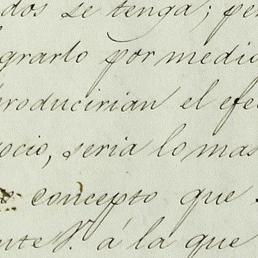 dos se tenga; per
grarlo por medio
roducirian el efe
ocio, seria lo mas
concepto que
ente V. á la que